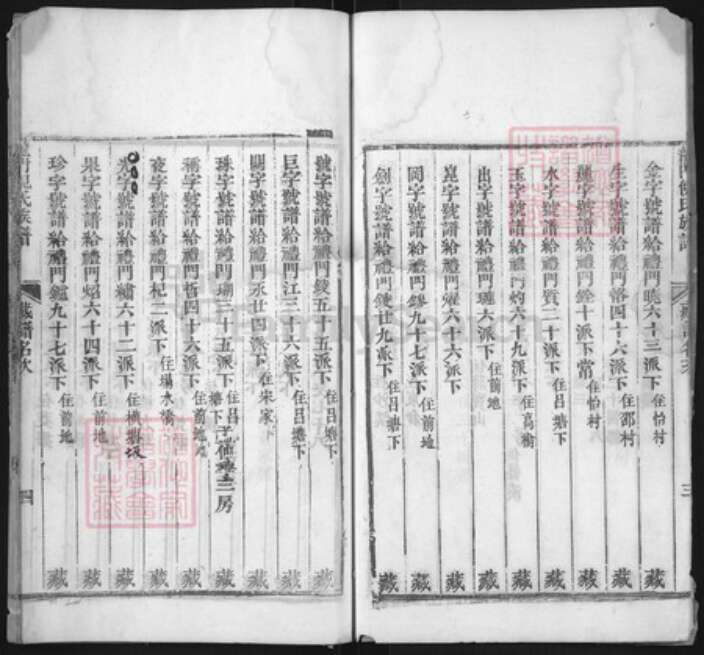 金字號譜給禮門曉六十三派下 住怡村 藏
生字號譜給禮門榕四十六派下 住邵村 藏
麗字號譜給禮門銓十派下常 住怡村 藏
水字號譜給禮門質二十派下 住呂塘下 藏
玉字號譜給禮門灼六十九派下 住高橋 藏
出字號譜給禮門璉六派下 住前地 藏
崑字號譜給禮門燿六十六派下 藏
岡字號譜給禮門鎳九派下 住前地 藏
劍字號譜給禮門鍵廿九派下 住呂塘下 藏
三
號字號譜給禮門錂五十五派下 住呂塘下 藏
巨字號譜給禮門江三十六派下 住呂塘下 藏
闕字號譜給禮門永廿四派下 住宋家 藏
珠字號譜給禮門瑚三十五派下 住呂塘下 三房 藏
稱字號譜給禮門哲四十六派下 住前地 藏
夜字號譜給禮門杞二派下 住楊水橋 藏
光字號譜給禮門繡六十二派下 住橫塘坂 藏
果字號譜給禮門炤六十四派下 住前地 藏
珍字號譜給禮門鑑九十七派下 藏
氏族譜 藏譜名次 四